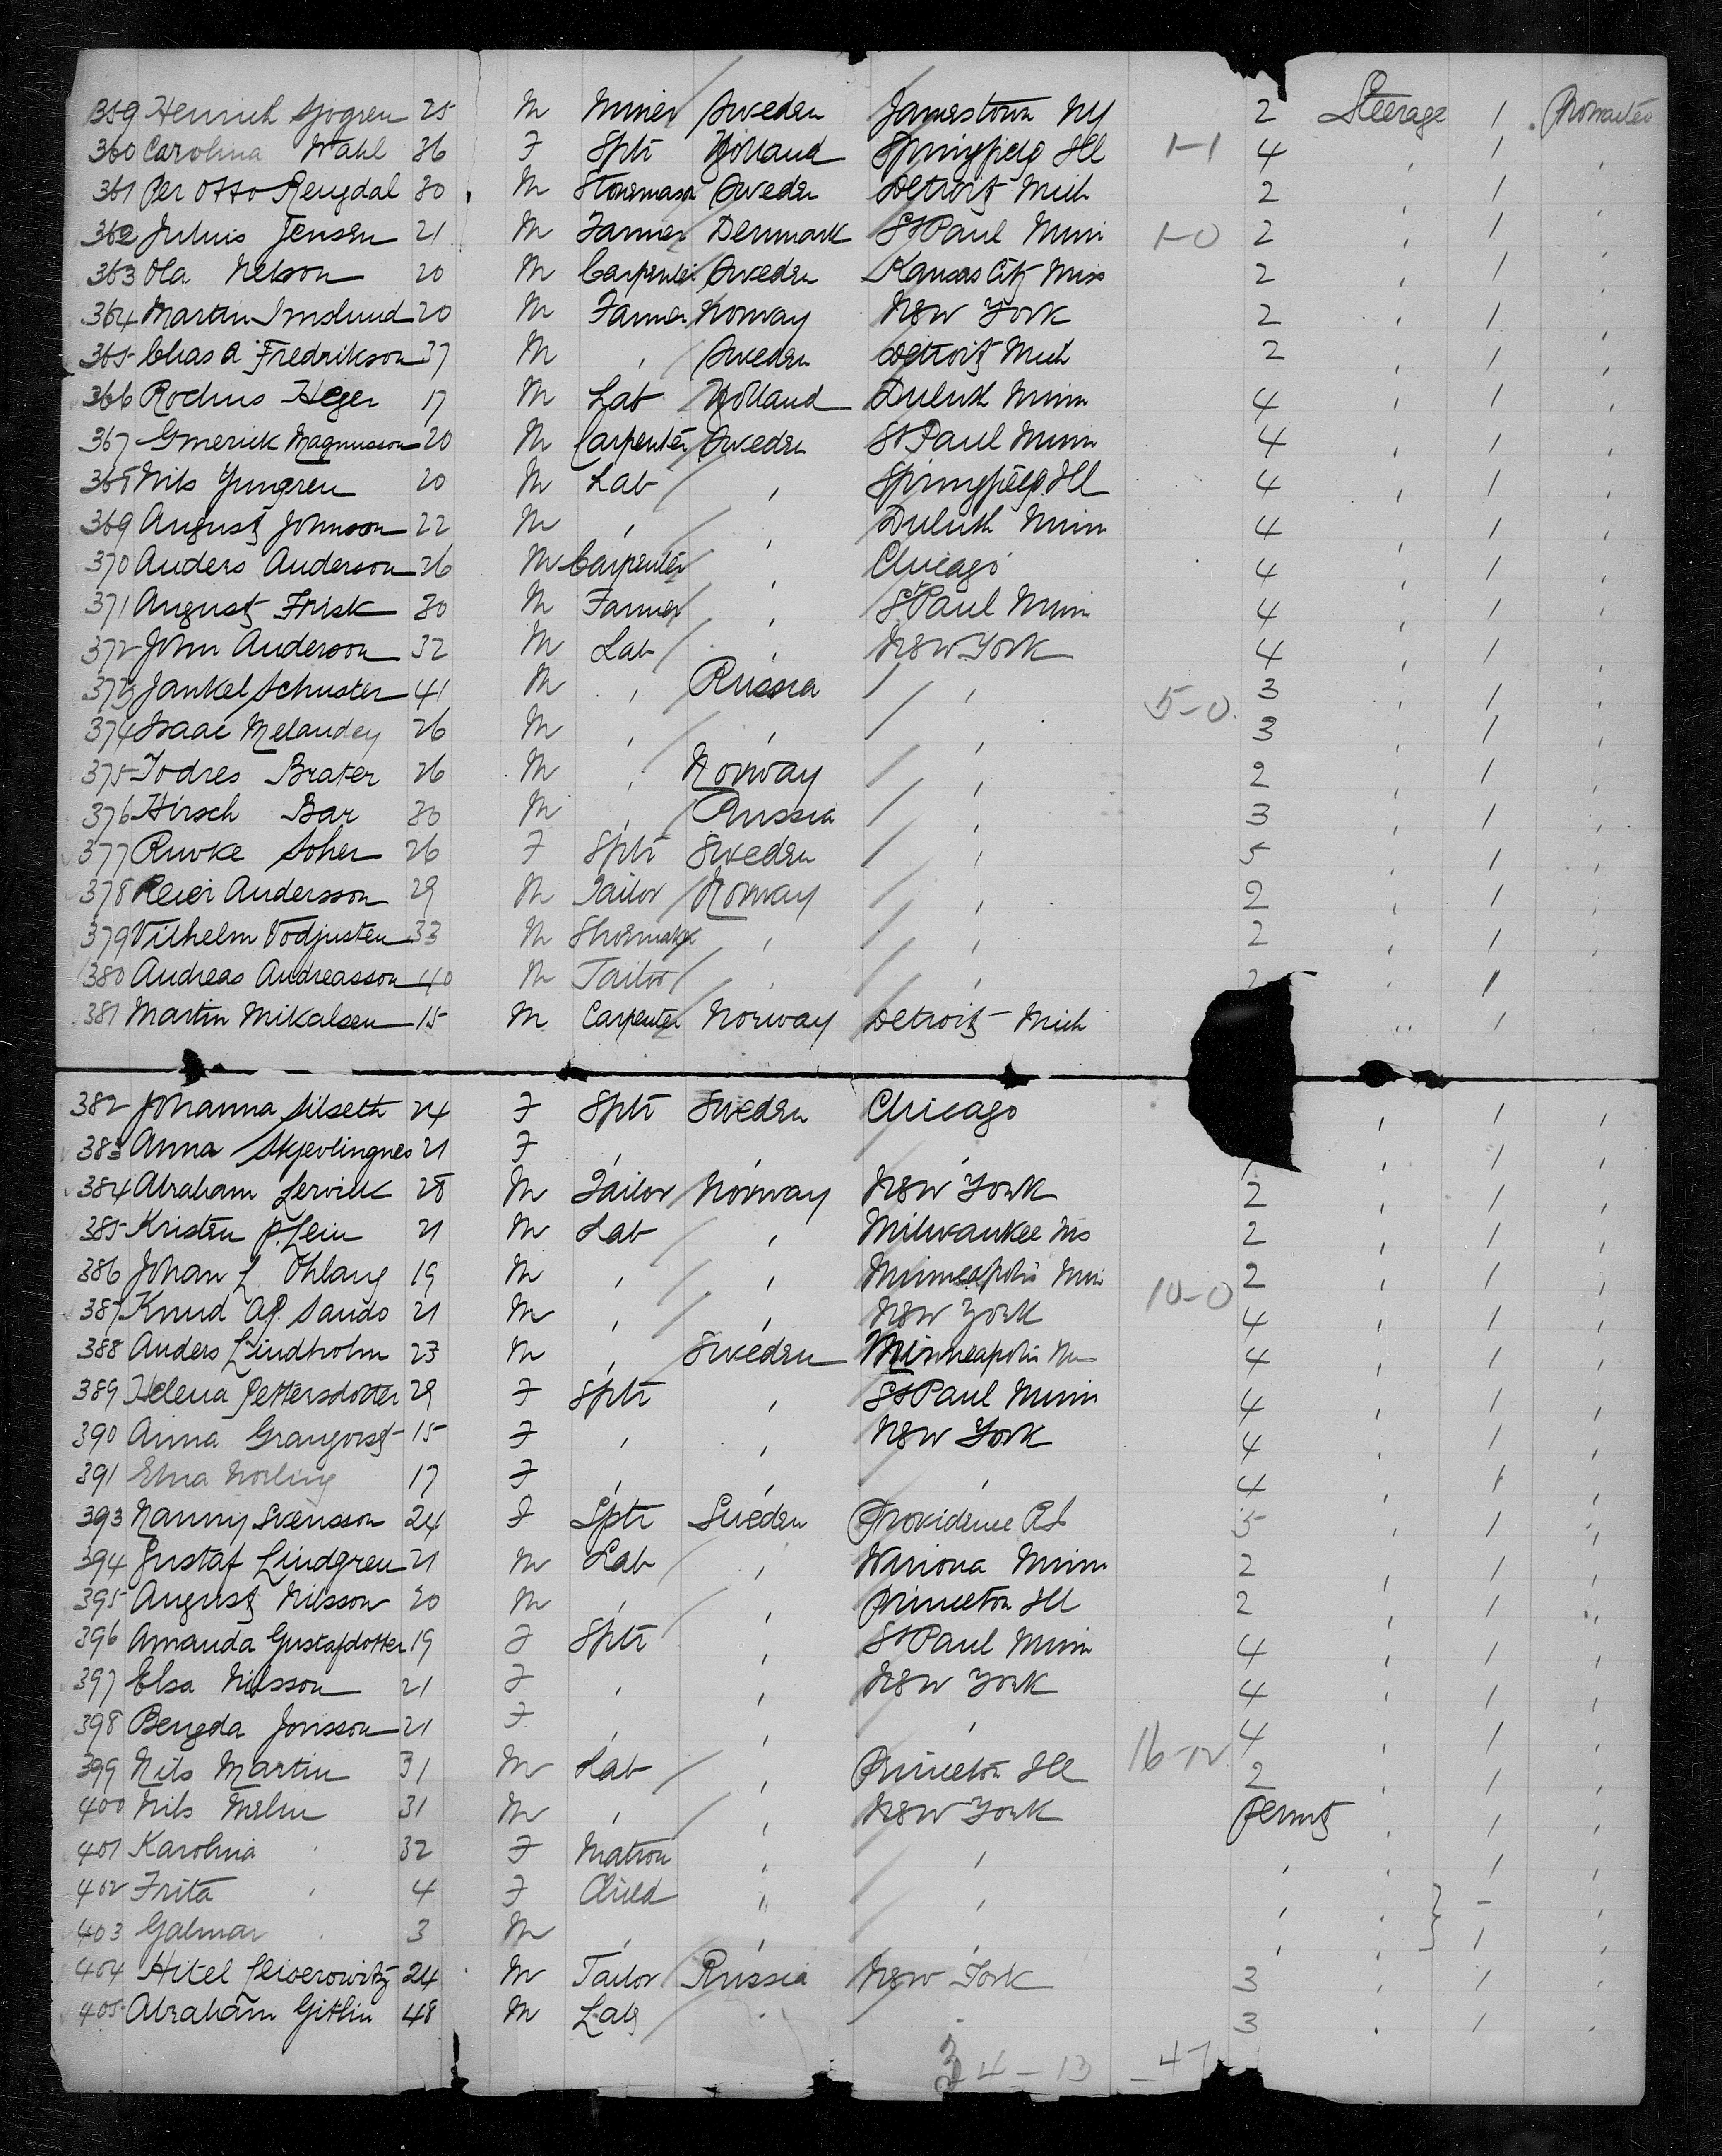 359 Henrich Sjogren 25 M Miner Sweden Jamestown NY 2 Steerage 1
360 Carolina Wahl 36 F Sptr Holland Springfield Ill 1-1 4 , 1 ,
361 Per Otto Rengdal 30 M Stonemason Sweden Detroit Mich 2 , 1 ,
362 Julius Jensen 21 M Farmer Denmark St Paul Minn 1-0 2 , 1 ,
363 Ola Nelson 20 M Carpenter Sweden Kansas City Miss 2 , 1 ,
364 Martin Imslund 20 M Farmer Norway New York 2 , 1 ,
365 Chas A Fredrikson 37 M , Sweden Detroit Mich 2 , 1 ,
366 Rochus Heger 17 M Lab Holland Duluth Minn 4 , 1 ,
367 Emerick Magnusson 20 M Carpenter Sweden St Paul Minn 4 , 1 ,
368 Nils Yungren 20 M Lab , Springfield Ill 4 , 1 ,
369 August Johnson 22 M , , Duluth Minn 4 , 1 ,
370 Anders Anderson 26 M Carpenter , Chicago 4 , 1 ,
371 August Frisk 30 M Farmer , St Paul Minn 4 , 1 ,
372 John Anderson 32 M Lab , New York 4 , 1 ,
373 Jankel Schuster 41 M , Russia , 3 , 1 ,
374 Isaac Melandey 26 M , , , 5-0 3 , 1 ,
375 Todres Brater 26 M , Norway , 2 , 1 ,
376 Hirsch Bar 30 M , Russia , 3 , 1 ,
377 Ruvke Soher 26 F Sptr Sweden , 5 , 1 ,
378 Reier Andersson 29 M Tailor Norway , 2 , 1 ,
379 Vilhelm Vodjusten 33 M Shoemaker , , 2 , 1 ,
380 Andreas Andreasson 40 M Tailor , , 2 , 1 ,
381 Martin Mikalsen 15 M Carpenter Norway Detroit Mich ,, 1 ,
382 Johanna Silseth 24 F Sptr Sweden Chicago , 1 ,
383 Anna Skjevlingnes 21 F , , , , 1 ,
384 Abraham Lervick 28 M Tailor Norway New York 2 , 1 ,
385 Kristen P. Lein 21 M Lab , Milwaukee 2 , 1 ,
386 Johan L Ohlang 19 M , , Minneapolis Min 2 , 1 ,
387 Knud Sando 21 M , , New York 10-0 4 , 1 ,
388 Anders Lindholm 23 M , Sweden Minneapolis 4 , 1 ,
389 Helena Pettersdotter 29 F Sptr , St Paul Minn 4 , 1 ,
390 Anna Granqvist 15 F , , New York 4 , 1 ,
391 Elna Norling 17 F , , , 4 , 1 ,
393 Nanny Svensson 24 F Sptr Sweden Providence RI 5 , 1 ,
394 Gustaf Lindgren 21 M Lab , Winona Minn 2 , 1 ,
395 August Nilsson 20 M , , Princeton Ill 2 , 1 ,
396 Amanda Gustafdotter 19 F Sptr , St Paul Minn 4 , 1 ,
397 Elsa Nilsson 21 F , , New York 4 , 1 ,
398 Bengda Jonsson 21 F , , , 4 , 1 ,
399 Nils Martin 31 M Lab , Princeton Ill 16-12 2 , 1 ,
400 Nils Melin 31 M , , New York , 1 ,
401 Karolina , 32 F Matron , , , , 1 ,
402 Frita , 4 F Child ,, , , , - ,
403 Galmar , 3 M , , , , , 1 ,
404 Hitel Leiserowitz 24 M Tailor Russia New York 3 , 1 ,
405 Abraham Gitlin 48 M Lab , , 3 , 1 ,
34-13 - 47